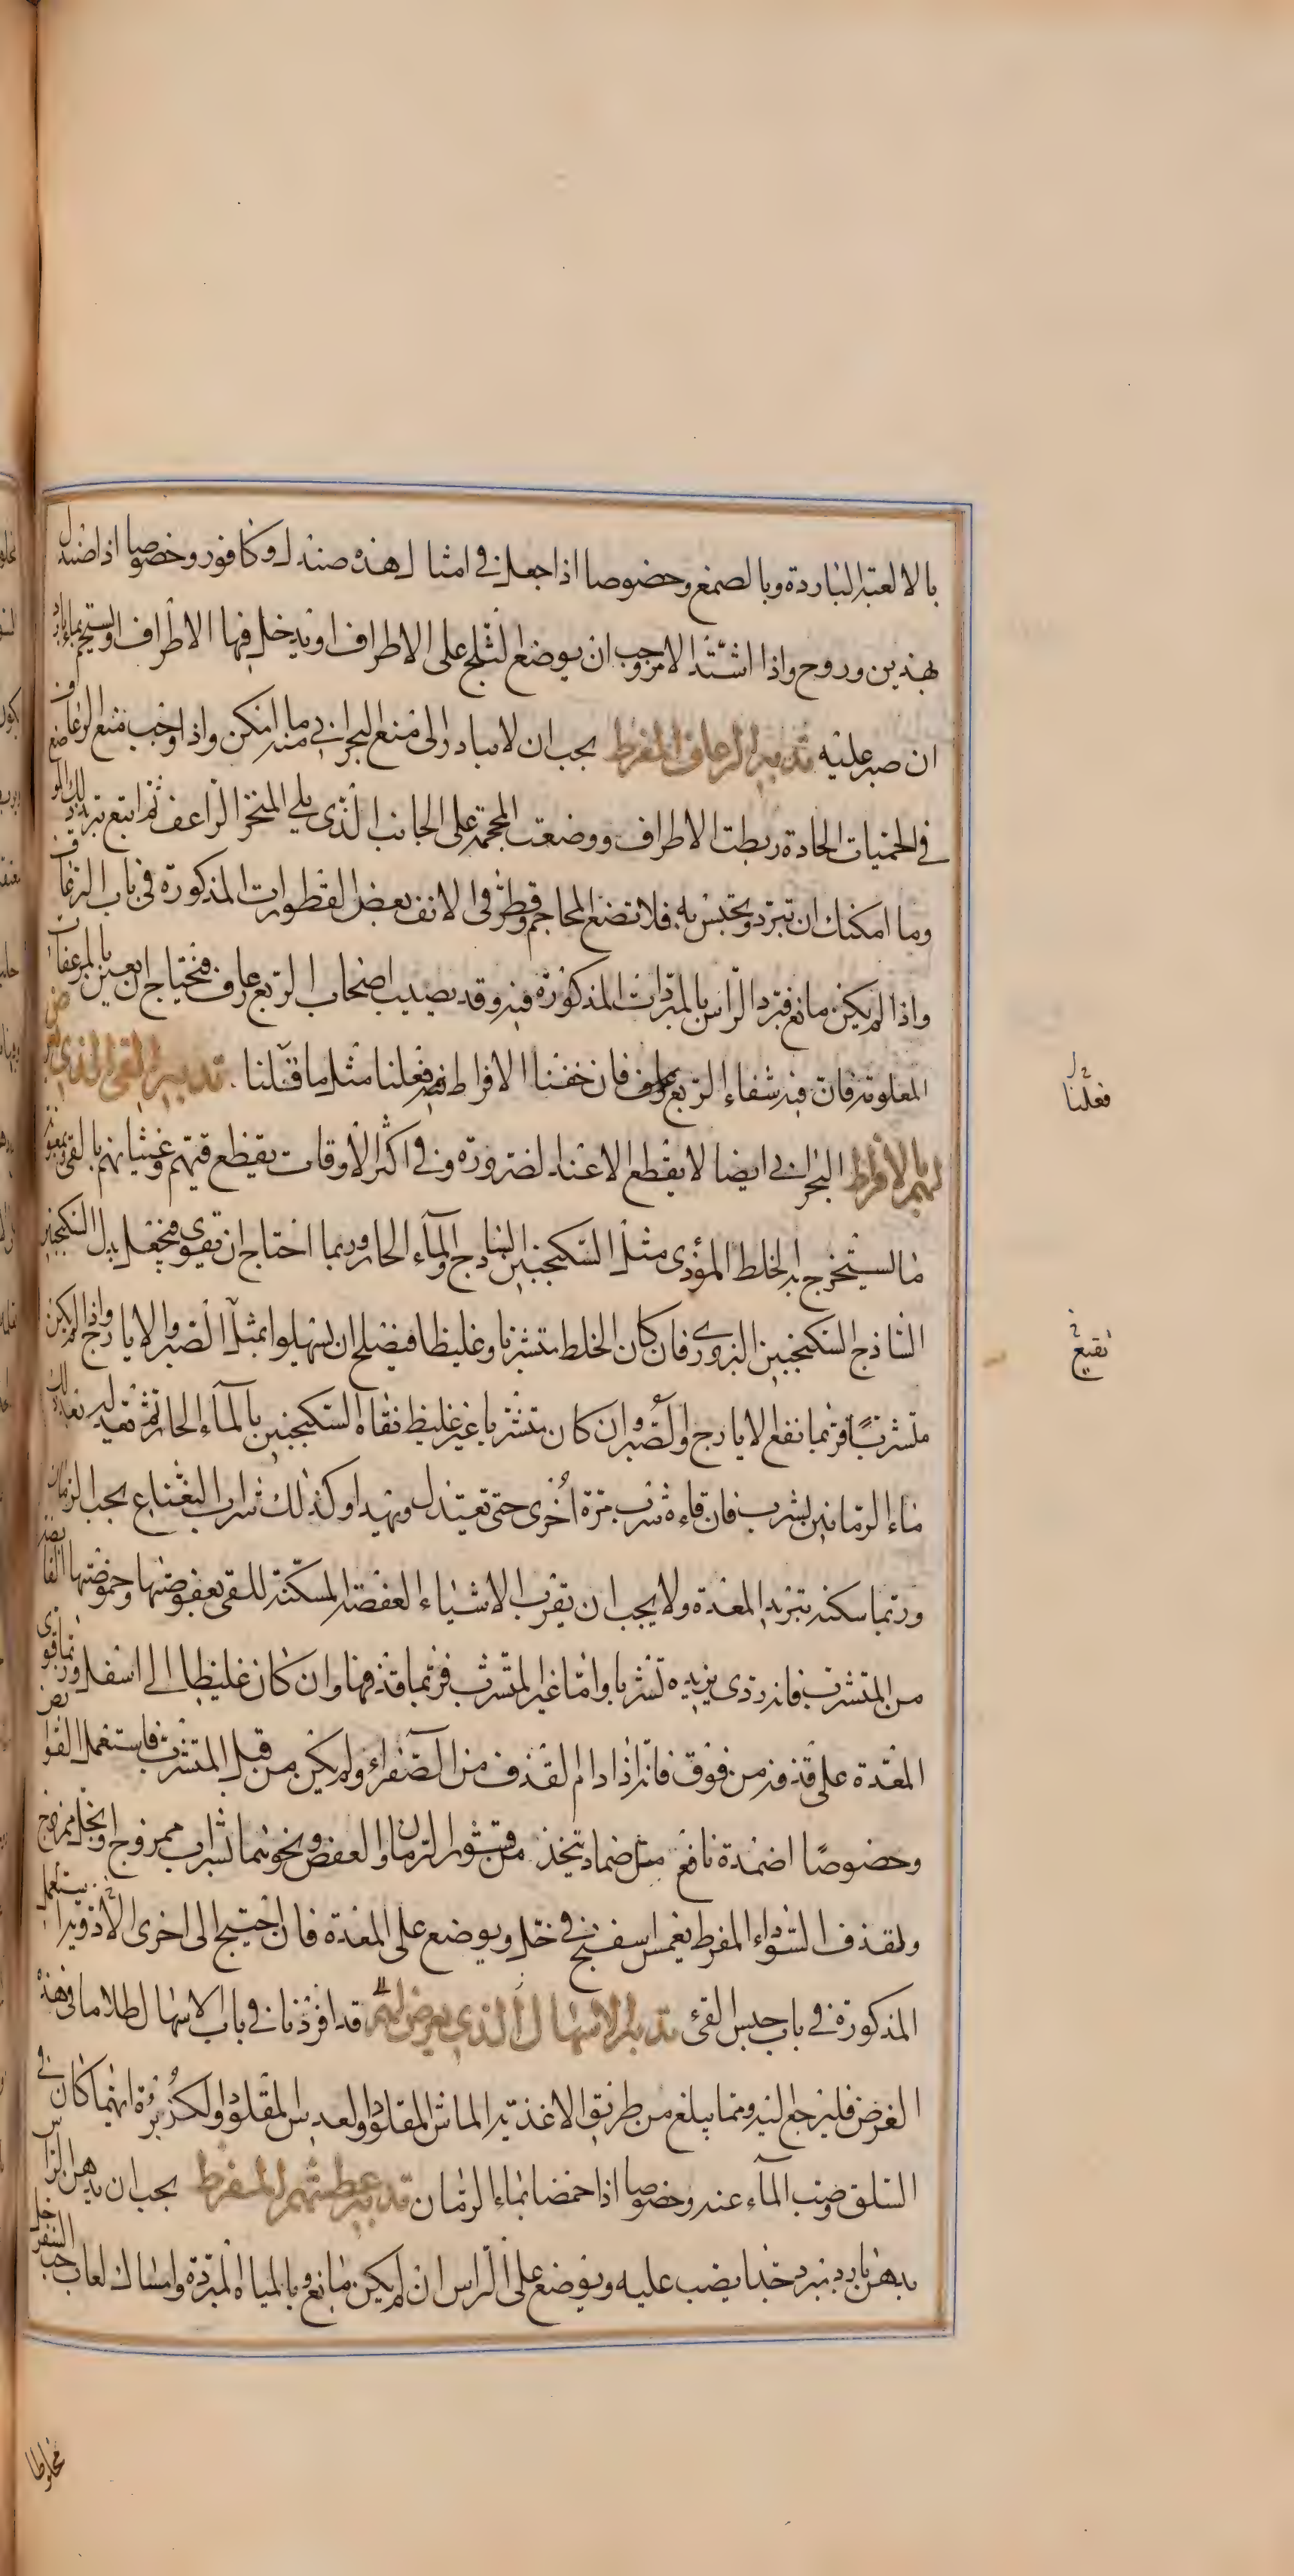 بالالعبة الباردة وبالصمغ وخصوصا اذا جعل في امثال هذه صندل وكافور وخصوصا اذا صندل
بهذين وروح واذا اشتد الامر وجب ان يوضع الثلج على الاطراف او يدخل فيها الاطراف او يستحم بماء بارد
ان صبر عليه تدبير الرعاف المفرط يجب ان لا يبادر الى منع البحراني منه ما امكن واذا وجب منع الرعاف
في الحميات الحادة ربطت الاطراف ووضعت المحجمة على الجانب الذي يلي المنخر الراعف ثم اتبع تبريد ذلك الموضع
وما امكنك ان تبرد ويحتبس به فلا تضع المحاجم وقطر في الانف بعض القطورات المذكورة في باب الرعاف
واذا لم يكن مانع فبرد الراس بالمبردات المذكورة فيه وقد يصيب اصحاب الربع رعاف فنحتاج ان بالمرعفات
المعلومة فان فيه شفاء الربع فان خفنا الافراط فعلنا مثل ما قلنا . تدبير القى الذى يعرض
لهم بالافراط البحراني ايضا لا يقطع الا عند الضرورة وفي اكثر الاوقات يقطع قيئهم وغثيانهم بالقى وبمعونة
ما يستخرج به الخلط المؤذى مثل السكنجبين الساذج والماء الحار وربما احتاج ان تقوى فيجعل بدل السكنجبين
الساذج السكنجبين البزوري فان كان الخلط متشربا وغليظا فيصلح ان يسهلوا بمثل الصبر والايارج واذا لم يكن
متشربا فربما نفع الايارج والصبر وان كان متشربا غير غليظ نقاه السكنجبين بالماء الحار ثم تعديله بعد ذلك
ماء الرمانين يشرب فان قاءه شرب مرة اخرى حتى تعتدل ويهدا وكذلك شراب النعناع بحب الرمان
وربما سكنه تبريد المعدة ولا يجب ان تقرب الاشياء العفصة المسكنة للقى بعفوصتها وحموضتها
من المتشرب فانه ردى يزيده تشربا واما غير المتشرب فربما قذفها وان كان غليظا الى اسفل وربما قوى
المعدة على قذفه من فوق فانه اذا دام القذف من الصفراء ولم يكن من قبل المتشرب فاستعمل القوابض
وخصوصا اضمدة نافع مثل ضماد يتخذ من قشور الرمان والعفص ونحوهما بشراب ممزوج او بخل ممزوج
ولقذف السوداء المفرط يغمس اسفنج في خل ويوضع على المعدة فان احتيج الى اخرى الادوية يستعمل
المذكورة في باب حبس القئ تدبير الاسهال الذى يعرض لهم قد افردنا في باب الاسهال كلاما في هذا
الغرض فليرجع اليه ومما يبلغ من طريق الاغذية الماش المقلو والعدس المقلو والكزبرة ايهما كان في
السلق وصب الماء عنه وخصوصا اذا حمضا بماء الرمان تدبير عطشهم المفرط يجب ان يدهن الراس
بدهن بارد مبرد جدا يصب عليه ويوضع على الراس ان لم يكن مانع وبالمياه المبردة وامساك لعاب حب السفرجل
مخلوطا
فعلنا
نقيع